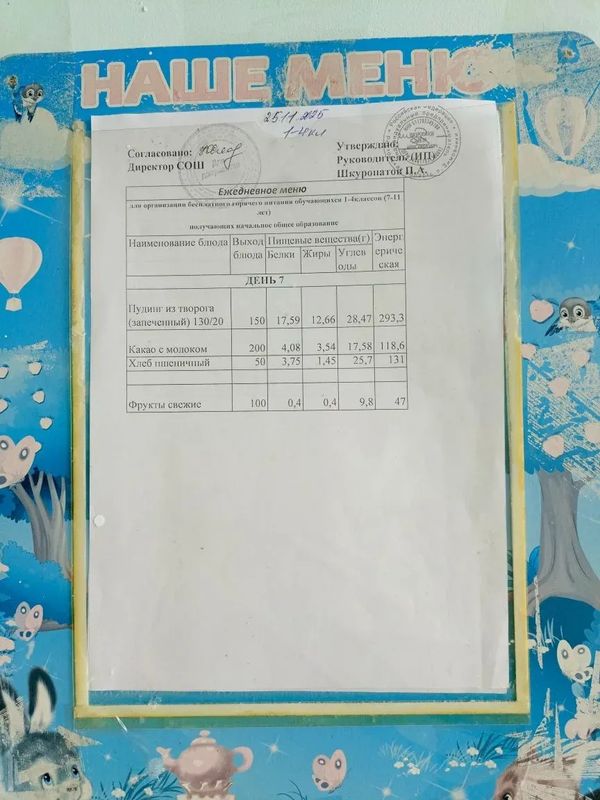 НАШЕ МЕНЮ
25.11.2025
1-4 кл
Согласовано:
Директор СОШ
Утверждаю:
Руководитель (ИП)
Шкуропатой П.А.
Ежедневное меню
для организации бесплатного горячего питания обучающихся 1-4классов (7-11
лет)
получающих начальное общее образование
Наименование блюда Выход блюда Пищевые вещества(г) Энергетическая
Белки Жиры Углеводы
ДЕНЬ 7
Пудинг из творога
(запеченный) 130/20 150 17,59 12,66 28,47 293,3
Какао с молоком 200 4,08 3,54 17,58 118,6
Хлеб пшеничный 50 3,75 1,45 25,7 131
Фрукты свежие 100 0,4 0,4 9,8 47